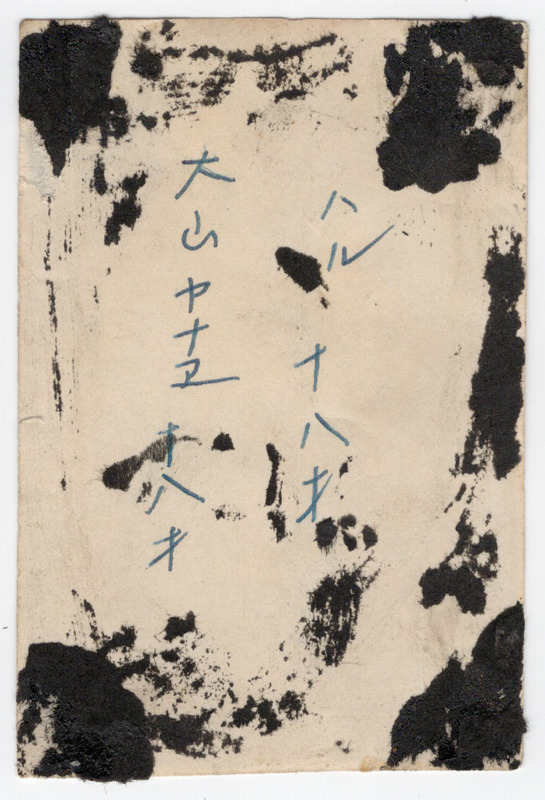 ハル 十八才
大山ヤナヱ 十八才